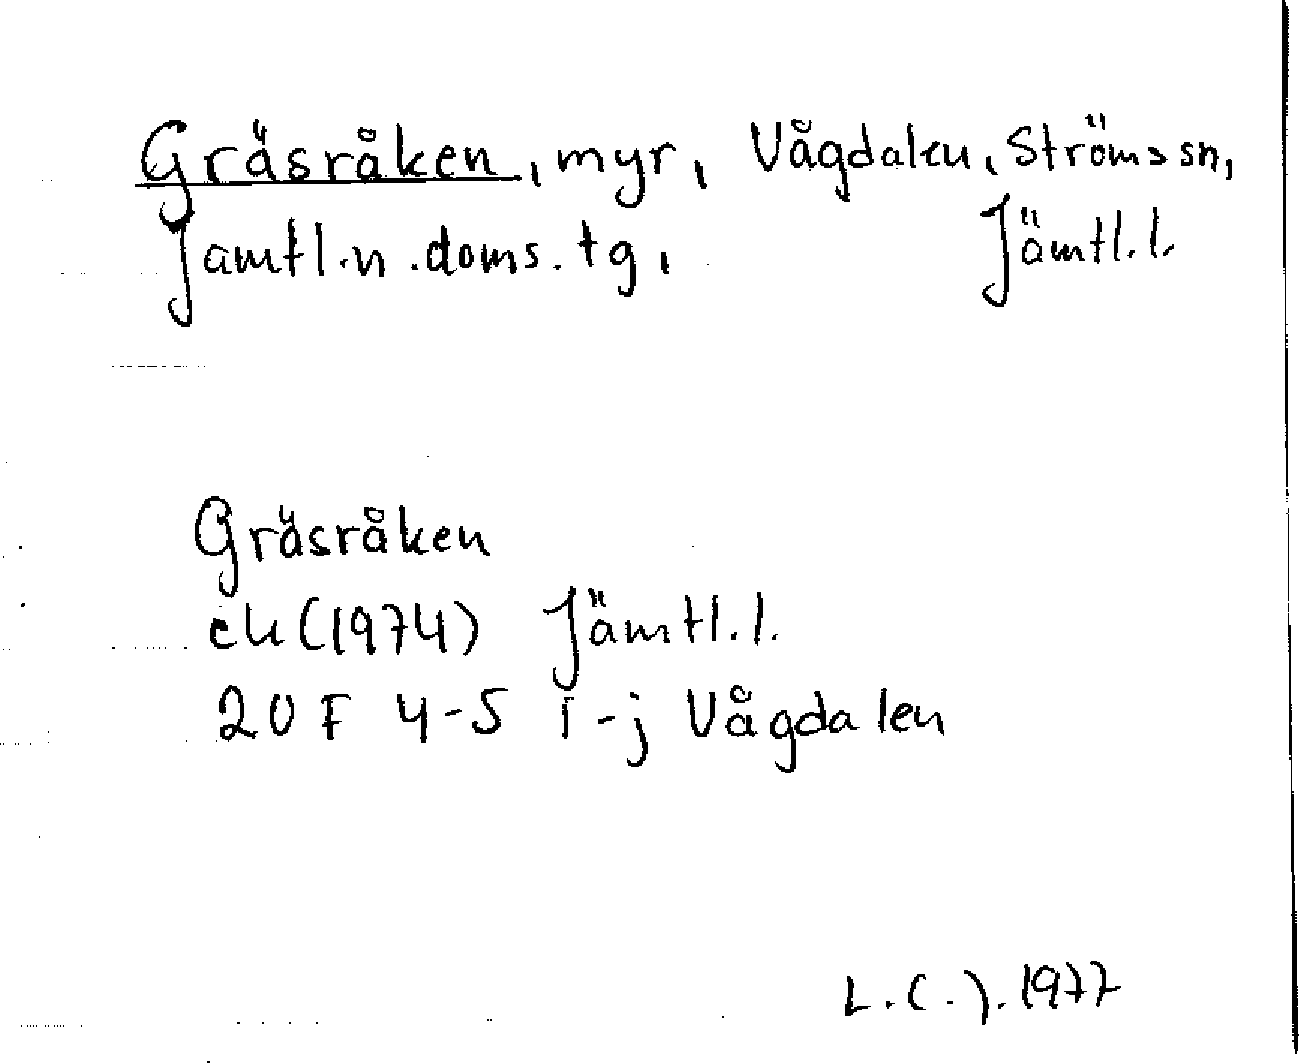 Gräsråken, myr, Vågdalen, Ströms sn,
Jämtl. n. doms. tg, Jämtl. l.
Gräsråken
ek (1974) Jämtl. l.
20 F 4-5 i-j Vågdalen
L. C. J. 1977